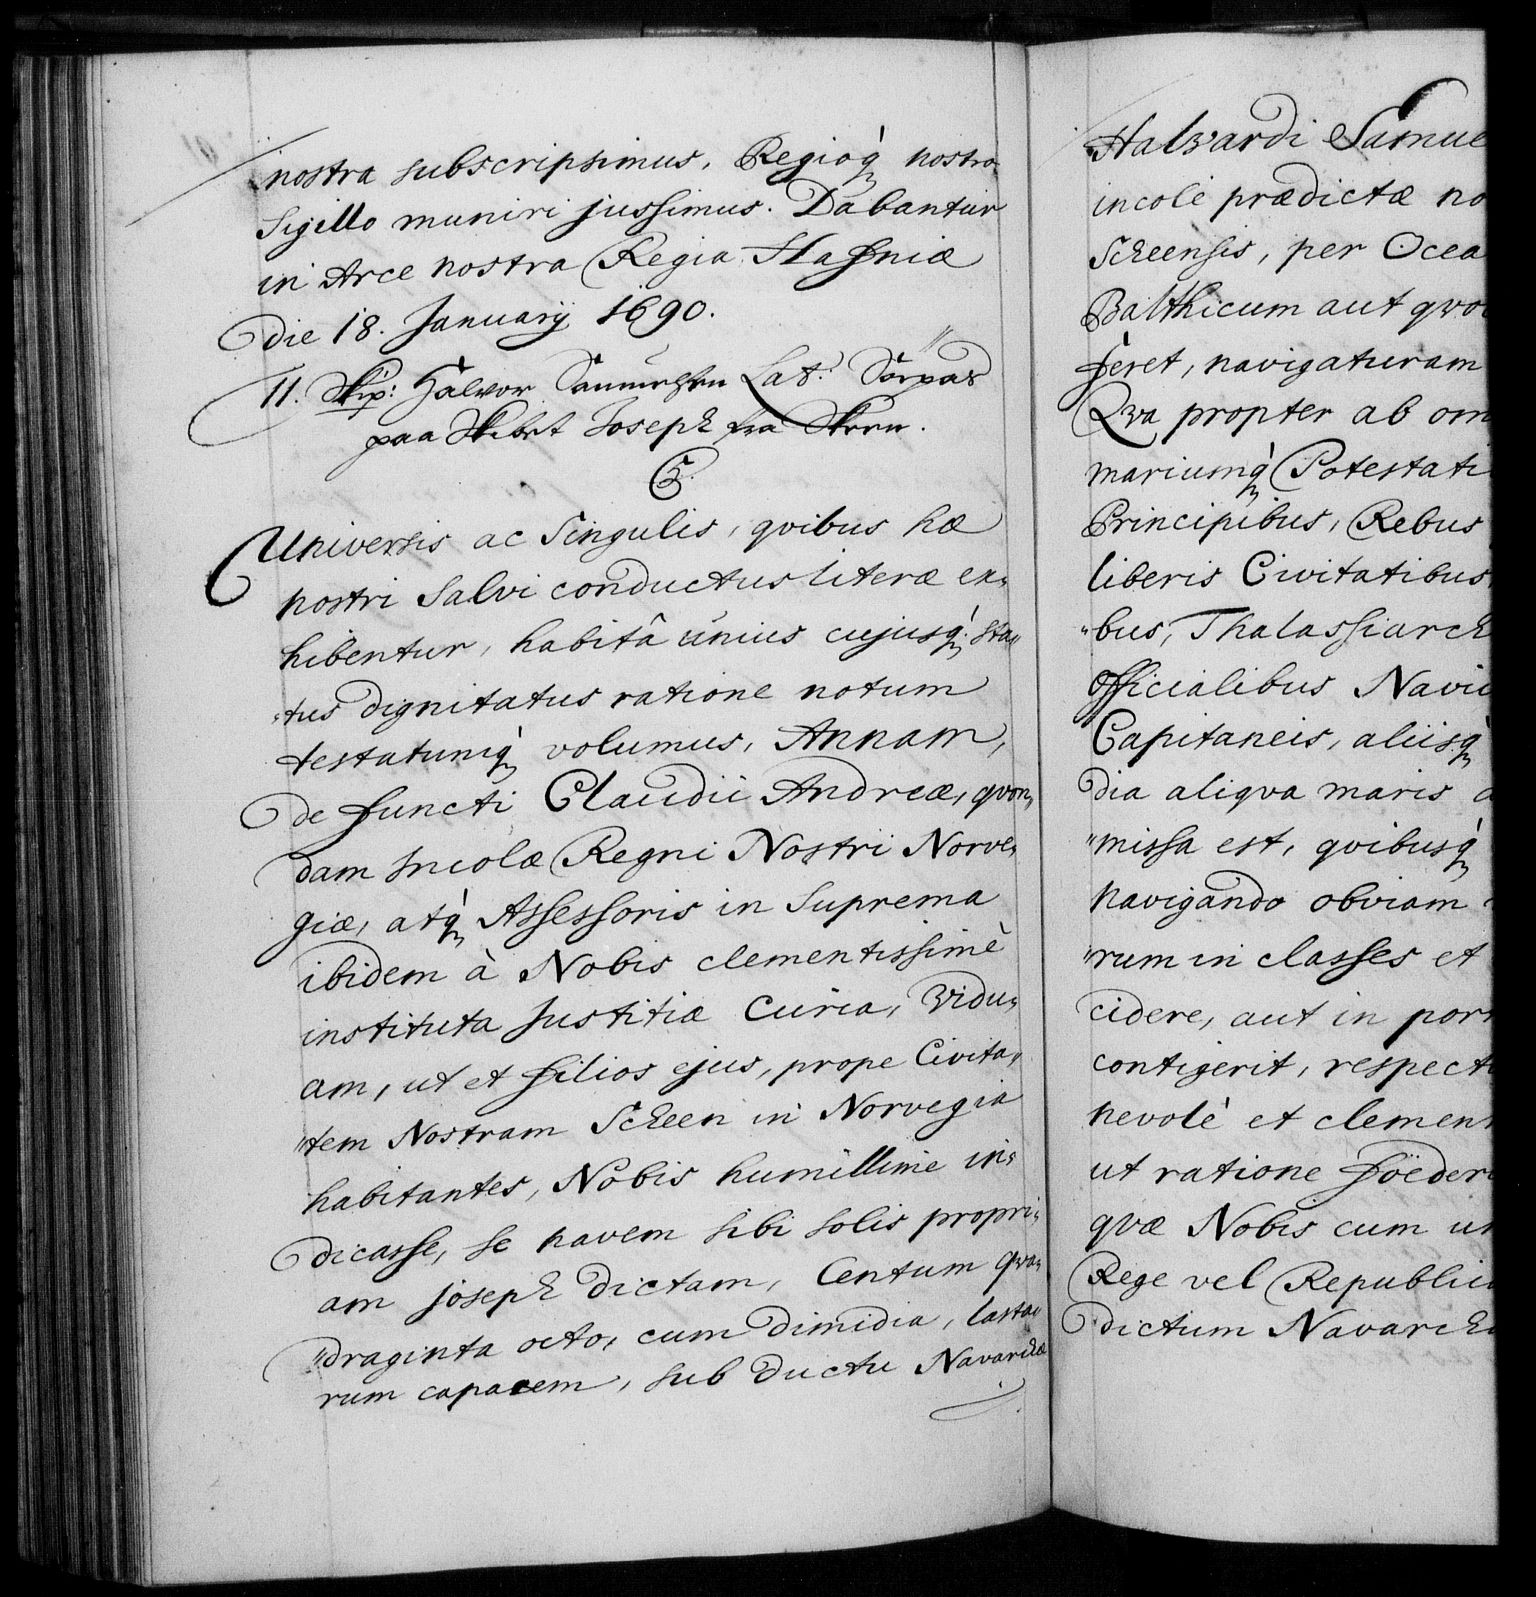 nostra subscripsimus, Regioq́ nostro
Sigillo muniri jussimus. Dabantur
in Arce nostra Regia Hafniæ
die 18. Januarÿ 1690.
11. Skip: Halvor Samuelsen Lat: Søepas
paa Skibet Joseph fra Skeen.
C5.
Universis ac Singulis, qvibus hæ
nostri Salvi conductus literæ ex„
hibentur, habitâ unius cujusq́; sta„
„tus dignitatus ratione notum
testatumq́ volumus, Annam,
defuncti Claudii Andreæ, qvon„
dam Incolæ Regni Nostri Norve„
giæ, atq́ Assessoris in Suprema
ibidem à Nobis clementissimè
instituta Justitiæ Curia, Vidu„
am, ut et filios ejus, prope Civita„
„tem Nostram Scheen in Norvegia
habitantes, Nobis humillime in„
dicasse, se navem sibi solis propri„
am Joseph dictam, Centum qva„
„draginta octo, cum dimidia, lasta„
rum capacem, sub ductu Navarchæ
Halvardi Samue
incolæ prædictæ no
Scheensis, per Ocea
Balthicum aut qvo
feret, navigaturam
Qva propter ab om
mariumq́ Potestati
Principibus, Rebus
liberis Civitatibus
„bus, Thalassiarch
Officialibus Naviu
Capitaneis, aliisq́
dia aliqva maris
„missa est, qvibusq́
navigando obviam
„rum in classes et
cidere, aut in por
contigerit, respect
nevolè et clemen
ut ratione foëder
qvæ Nobis cum u
Rege vel Republic
dictum Navarch